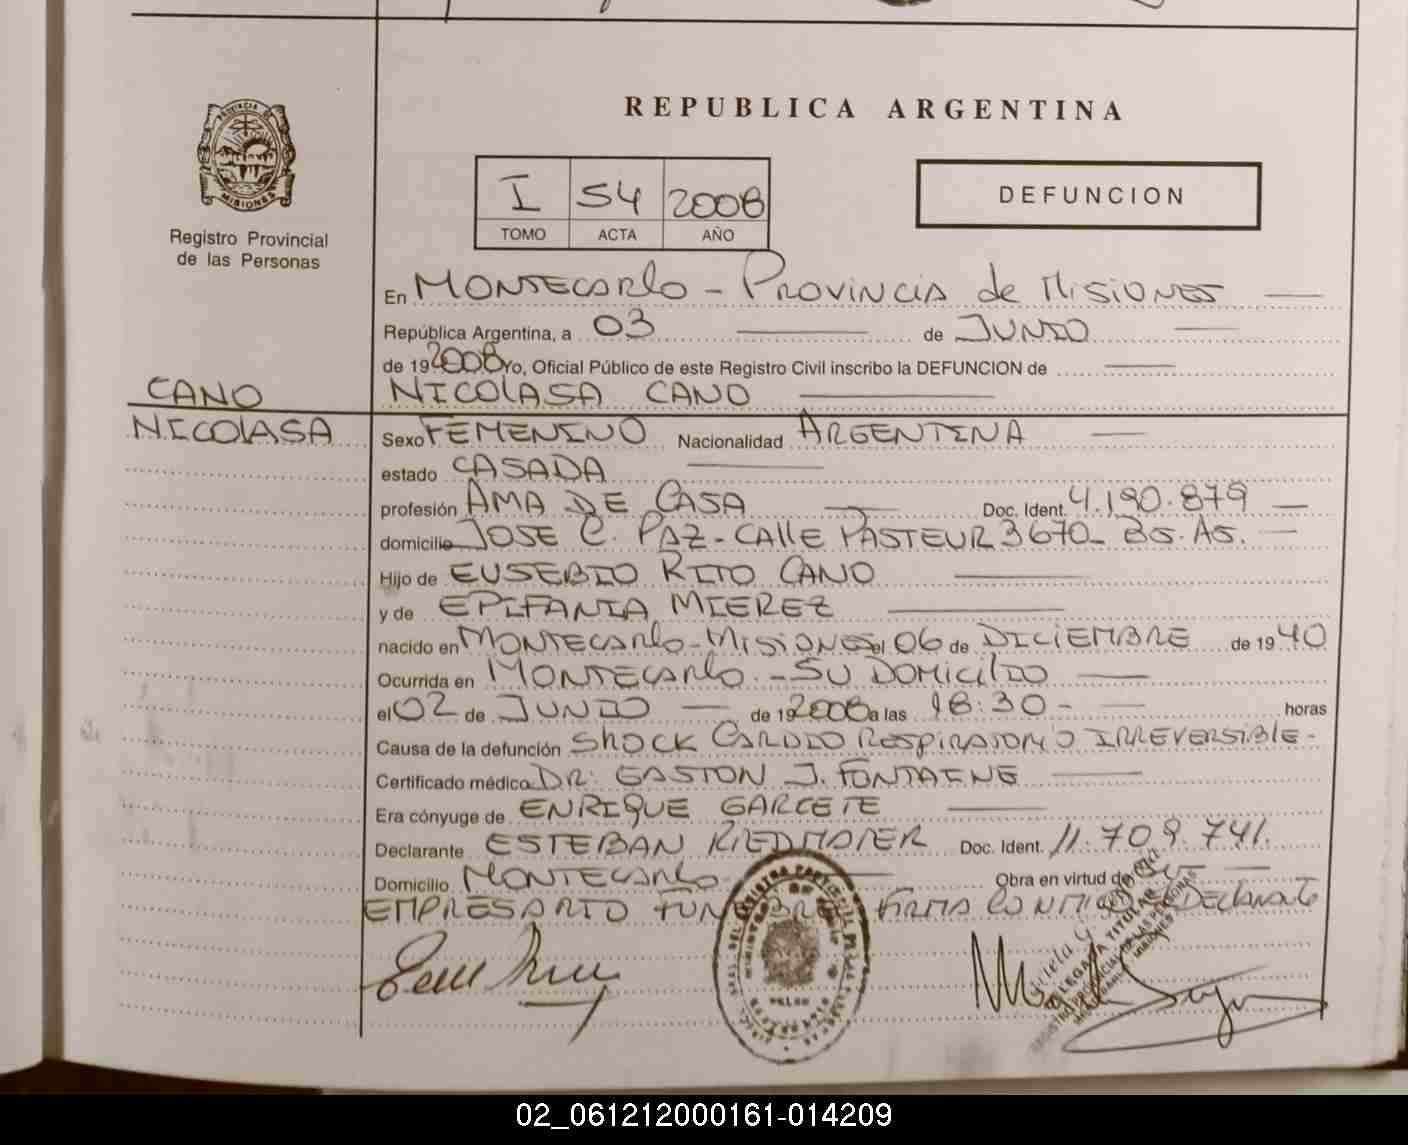 REPUBLICA ARGENTINA
PROVINCIA DE
MISIONES
I 54 2008
TOMO ACTA AÑO
DEFUNCION
Registro Provincial
de las Personas
En MONTECARLO - PROVINCIA de MISIONES
República Argentina, a 03 de JUNIO
de 19 2008 Yo, Oficial Público de este Registro Civil inscribo la DEFUNCION de
CANO
NICOLASA
NICOLASA CANO
Sexo FEMENINO Nacionalidad ARGENTINA
estado CASADA
profesión AMA DE CASA Doc. Ident. 4.190.879
domicilio JOSE C. PAZ - CALLE PASTEUR 3670 - BS. AS.
Hijo de EUSEBIO RITO CANO
y de EPIFANIA MIEREZ
nacido en MONTECARLO - MISIONES el 06 de DICIEMBRE de 19 40
Ocurrida en MONTECARLO. - SU DOMICILIO
el 02 de JUNIO de 19 2008 a las 18:30 - horas
Causa de la defunción SHOCK CARDIO RESPIRATORIO IRREVERSIBLE -
Certificado médico DR: GASTON J. FONTAINE
Era cónyuge de ENRIQUE GARCETE
Declarante ESTEBAN RIEDMAIER Doc. Ident. 11.709.741.
Domicilio MONTECARLO Obra en virtud de SU
EMPRESARIO FUNEBRE FIRMA CONMIGO EL DECLARANTE
DELEGADA TITULAR
02_061212000161-014209